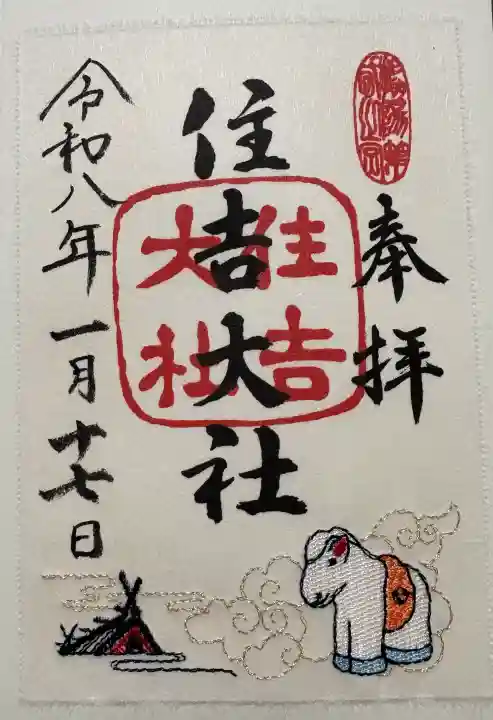 奉拝
住吉大社
住吉大社
令和八年一月十七日